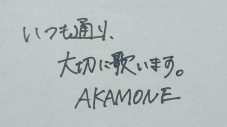 いつも通り、
大切に歌います。
AKAMONE